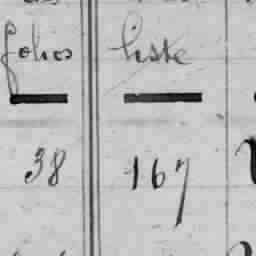 folios liste
38 167